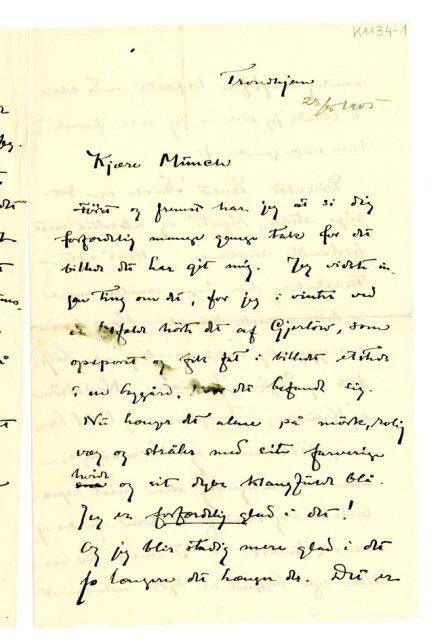 K1134-1
Trondhjem
23/
Kjære Munch
Först og fremst har jeg at si dig
forfærdelig mange gange tak for det
billede du har git mig. Jeg vidste in-
gen ting om det, för jeg i vinter ved
et hörte det af Gjerlöw, som
opsporet og fik fat i billedet etsteds
i en bygård, hvor det befandt sig.
Nu hænger det alene på mörk, rolig
væg og stråler med sit farverige
hvide og sit dybe klangfulde blå.
Jeg er forfærdelig glad i det!
Og jeg blir stadig mere glad i det
jo længere det hænger der. Det er